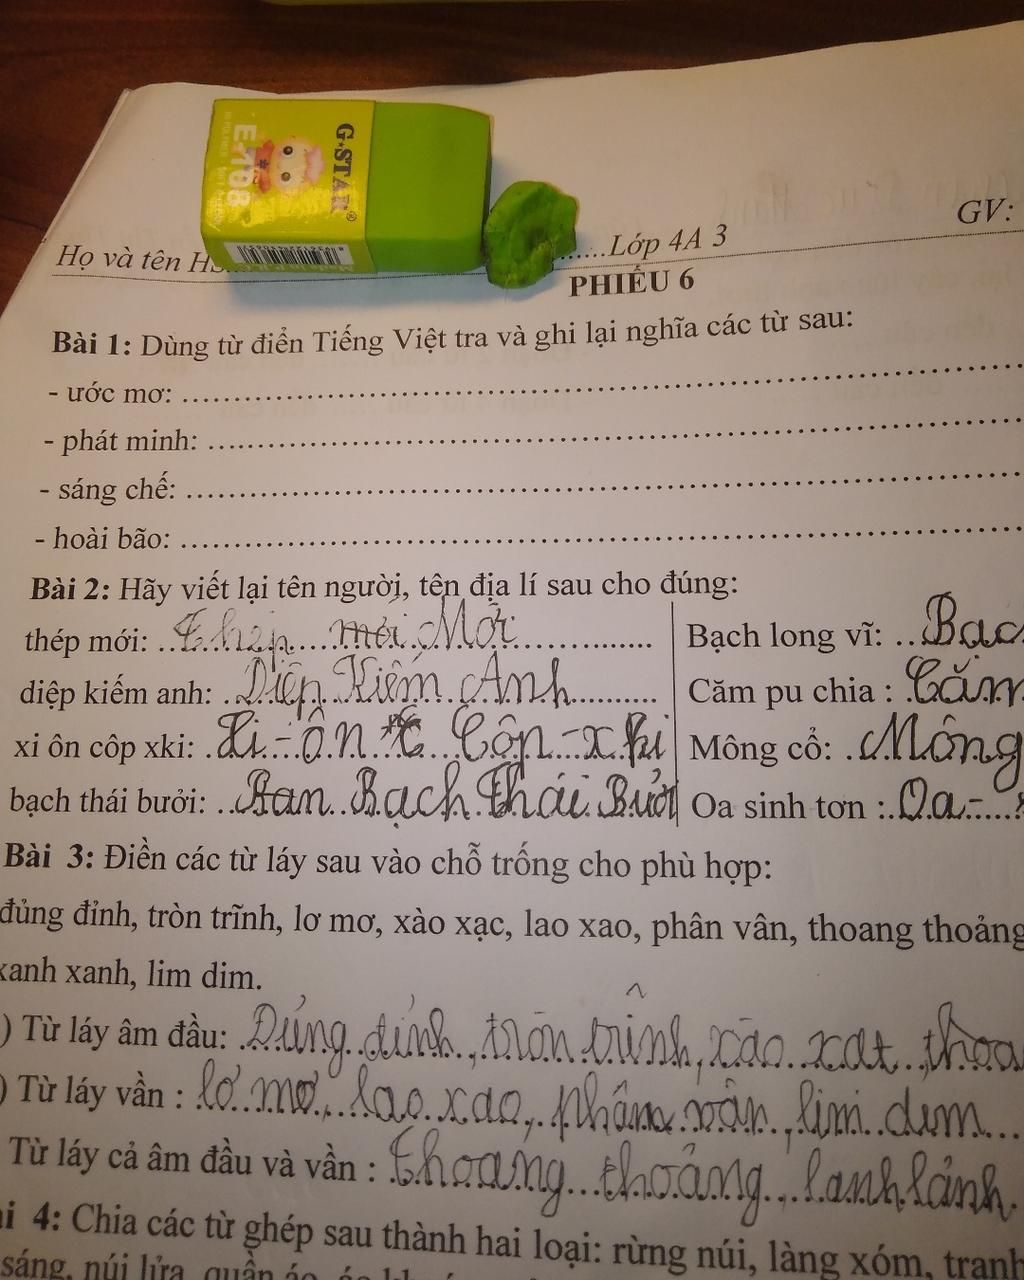 G★STAR®
E-108
Made in P.R.C
GV:
Họ và tên HS..........Lớp 4A 3
PHIẾU 6
Bài 1: Dùng từ điển Tiếng Việt tra và ghi lại nghĩa các từ sau:
- ước mơ: ..........
- phát minh: ..........
- sáng chế: ..........
- hoài bão: ..........
Bài 2: Hãy viết lại tên người, tên địa lí sau cho đúng:
thép mới: Thép mới Mới Bạch long vĩ: Bạc
diệp kiếm anh: Diệp Kiếm Anh Căm pu chia : Căm
xi ôn côp xki: Xi-ôn Côp-xki Mông cổ: Mông
bạch thái bưởi: Ban Bạch Thái Bưởi Oa sinh tơn : Oa-
Bài 3: Điền các từ láy sau vào chỗ trống cho phù hợp:
đủng đỉnh, tròn trĩnh, lơ mơ, xào xạc, lao xao, phân vân, thoang thoảng
xanh xanh, lim dim.
) Từ láy âm đầu: Đủng đỉnh, tròn trĩnh, xào xạt, thoa
) Từ láy vần : lơ mơ, lao xao, phân vân, lim dim
Từ láy cả âm đầu và vần : thoang thoảng, lanh lảnh.
ài 4: Chia các từ ghép sau thành hai loại: rừng núi, làng xóm, tranh
sáng, núi lửa, quần áo,